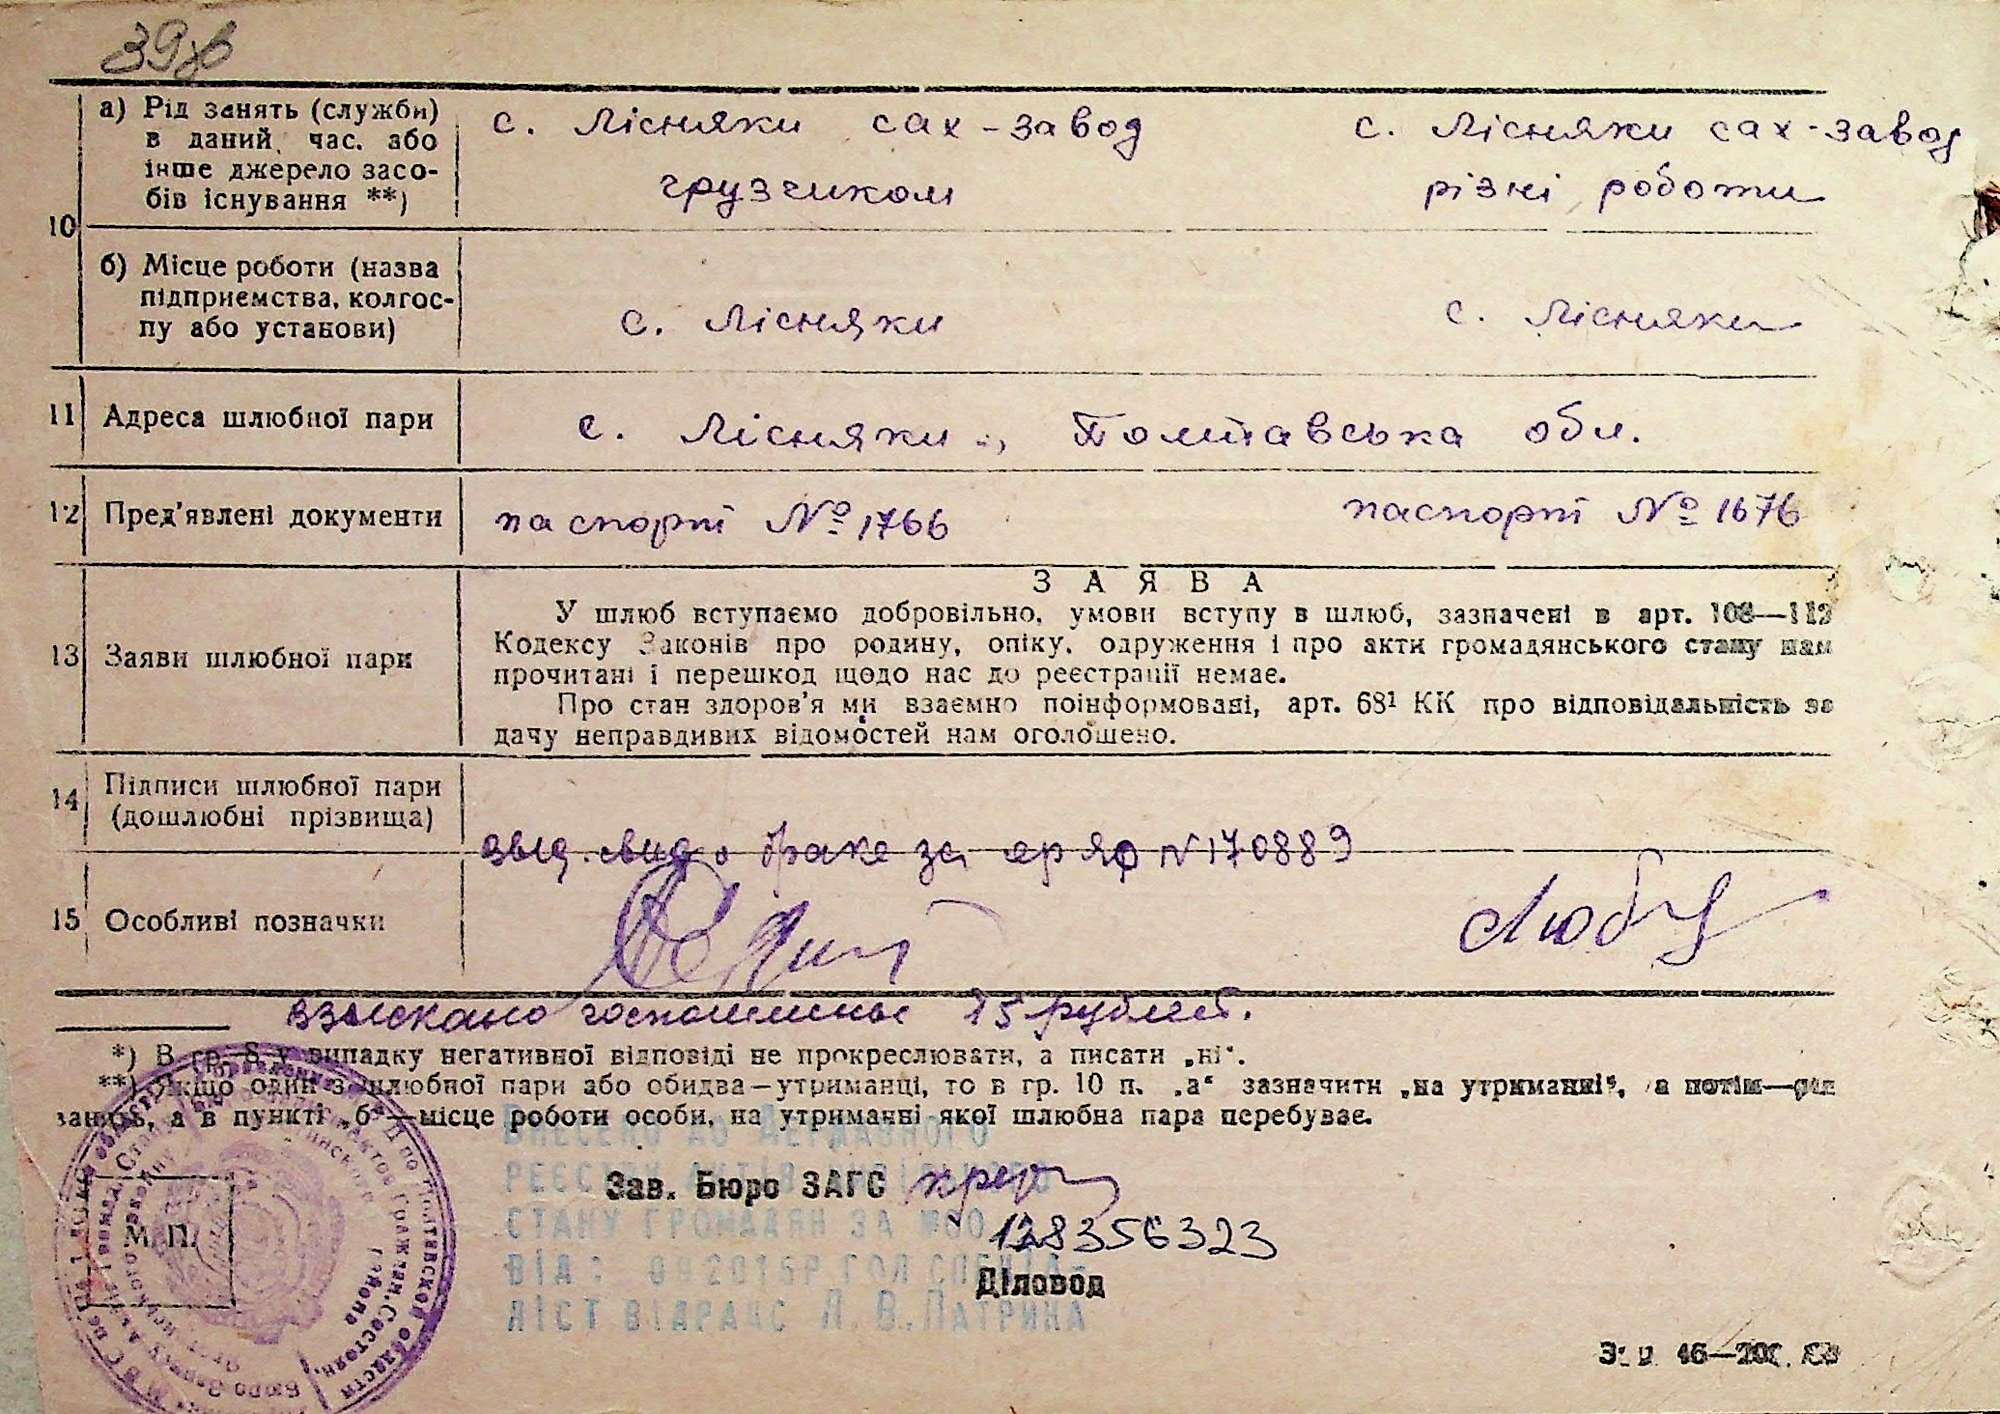 39зв
а) Рід занять (служби) в даний час. або інше джерело засобів існування **)
с. Лісняки сах-завод
грузчиком
с. Лісняки сах-завод
різні роботи
10
б) Місце роботи (назва підприємства, колгоспу або установи)
с. Лісняки
с. Лісняки
11 Адреса шлюбної пари
с. Лісняки, Полтавська обл.
12 Пред'явлені документи
паспорт № 1766
паспорт № 1676
ЗАЯВА
13 Заяви шлюбної пари
У шлюб вступаємо добровільно, умови вступу в шлюб, зазначені в арт. 108—112
Кодексу Законів про родину, опіку, одруження і про акти громадянського стану нам
прочитані і перешкод щодо нас до реєстрації немає.
Про стан здоров'я ми взаємно поінформовані, арт. 68¹ КК про відповідальність за
дачу неправдивих відомостей нам оголошено.
14 Підписи шлюбної пари
(дошлюбні прізвища)
о браке за № 170889
15 Особливі позначки
взыскано госпошлины 15 рублей.
*) В гр. 8 у випадку негативної відповіді не прокреслювати, а писати „ні“.
**) Якщо один з шлюбної пари або обидва—утриманці, то в гр. 10 п. „а“ зазначити „на утриманні“, а потім—рід
занять, а в пункті „б“—місце роботи особи, на утриманні якої шлюбна пара перебуває.
ВНЕСЕНО ДО ДЕРЖАВНОГО
РЕЄСТРУ АКТІВ ЦИВІЛЬНОГО
Зав. Бюро ЗАГС
СТАНУ ГРОМАДЯН ЗА №00
128356323
М. П.
ВІД:
Діловод
ЛІСТ ВІДРАЦС Л. В. ПАТРИНА